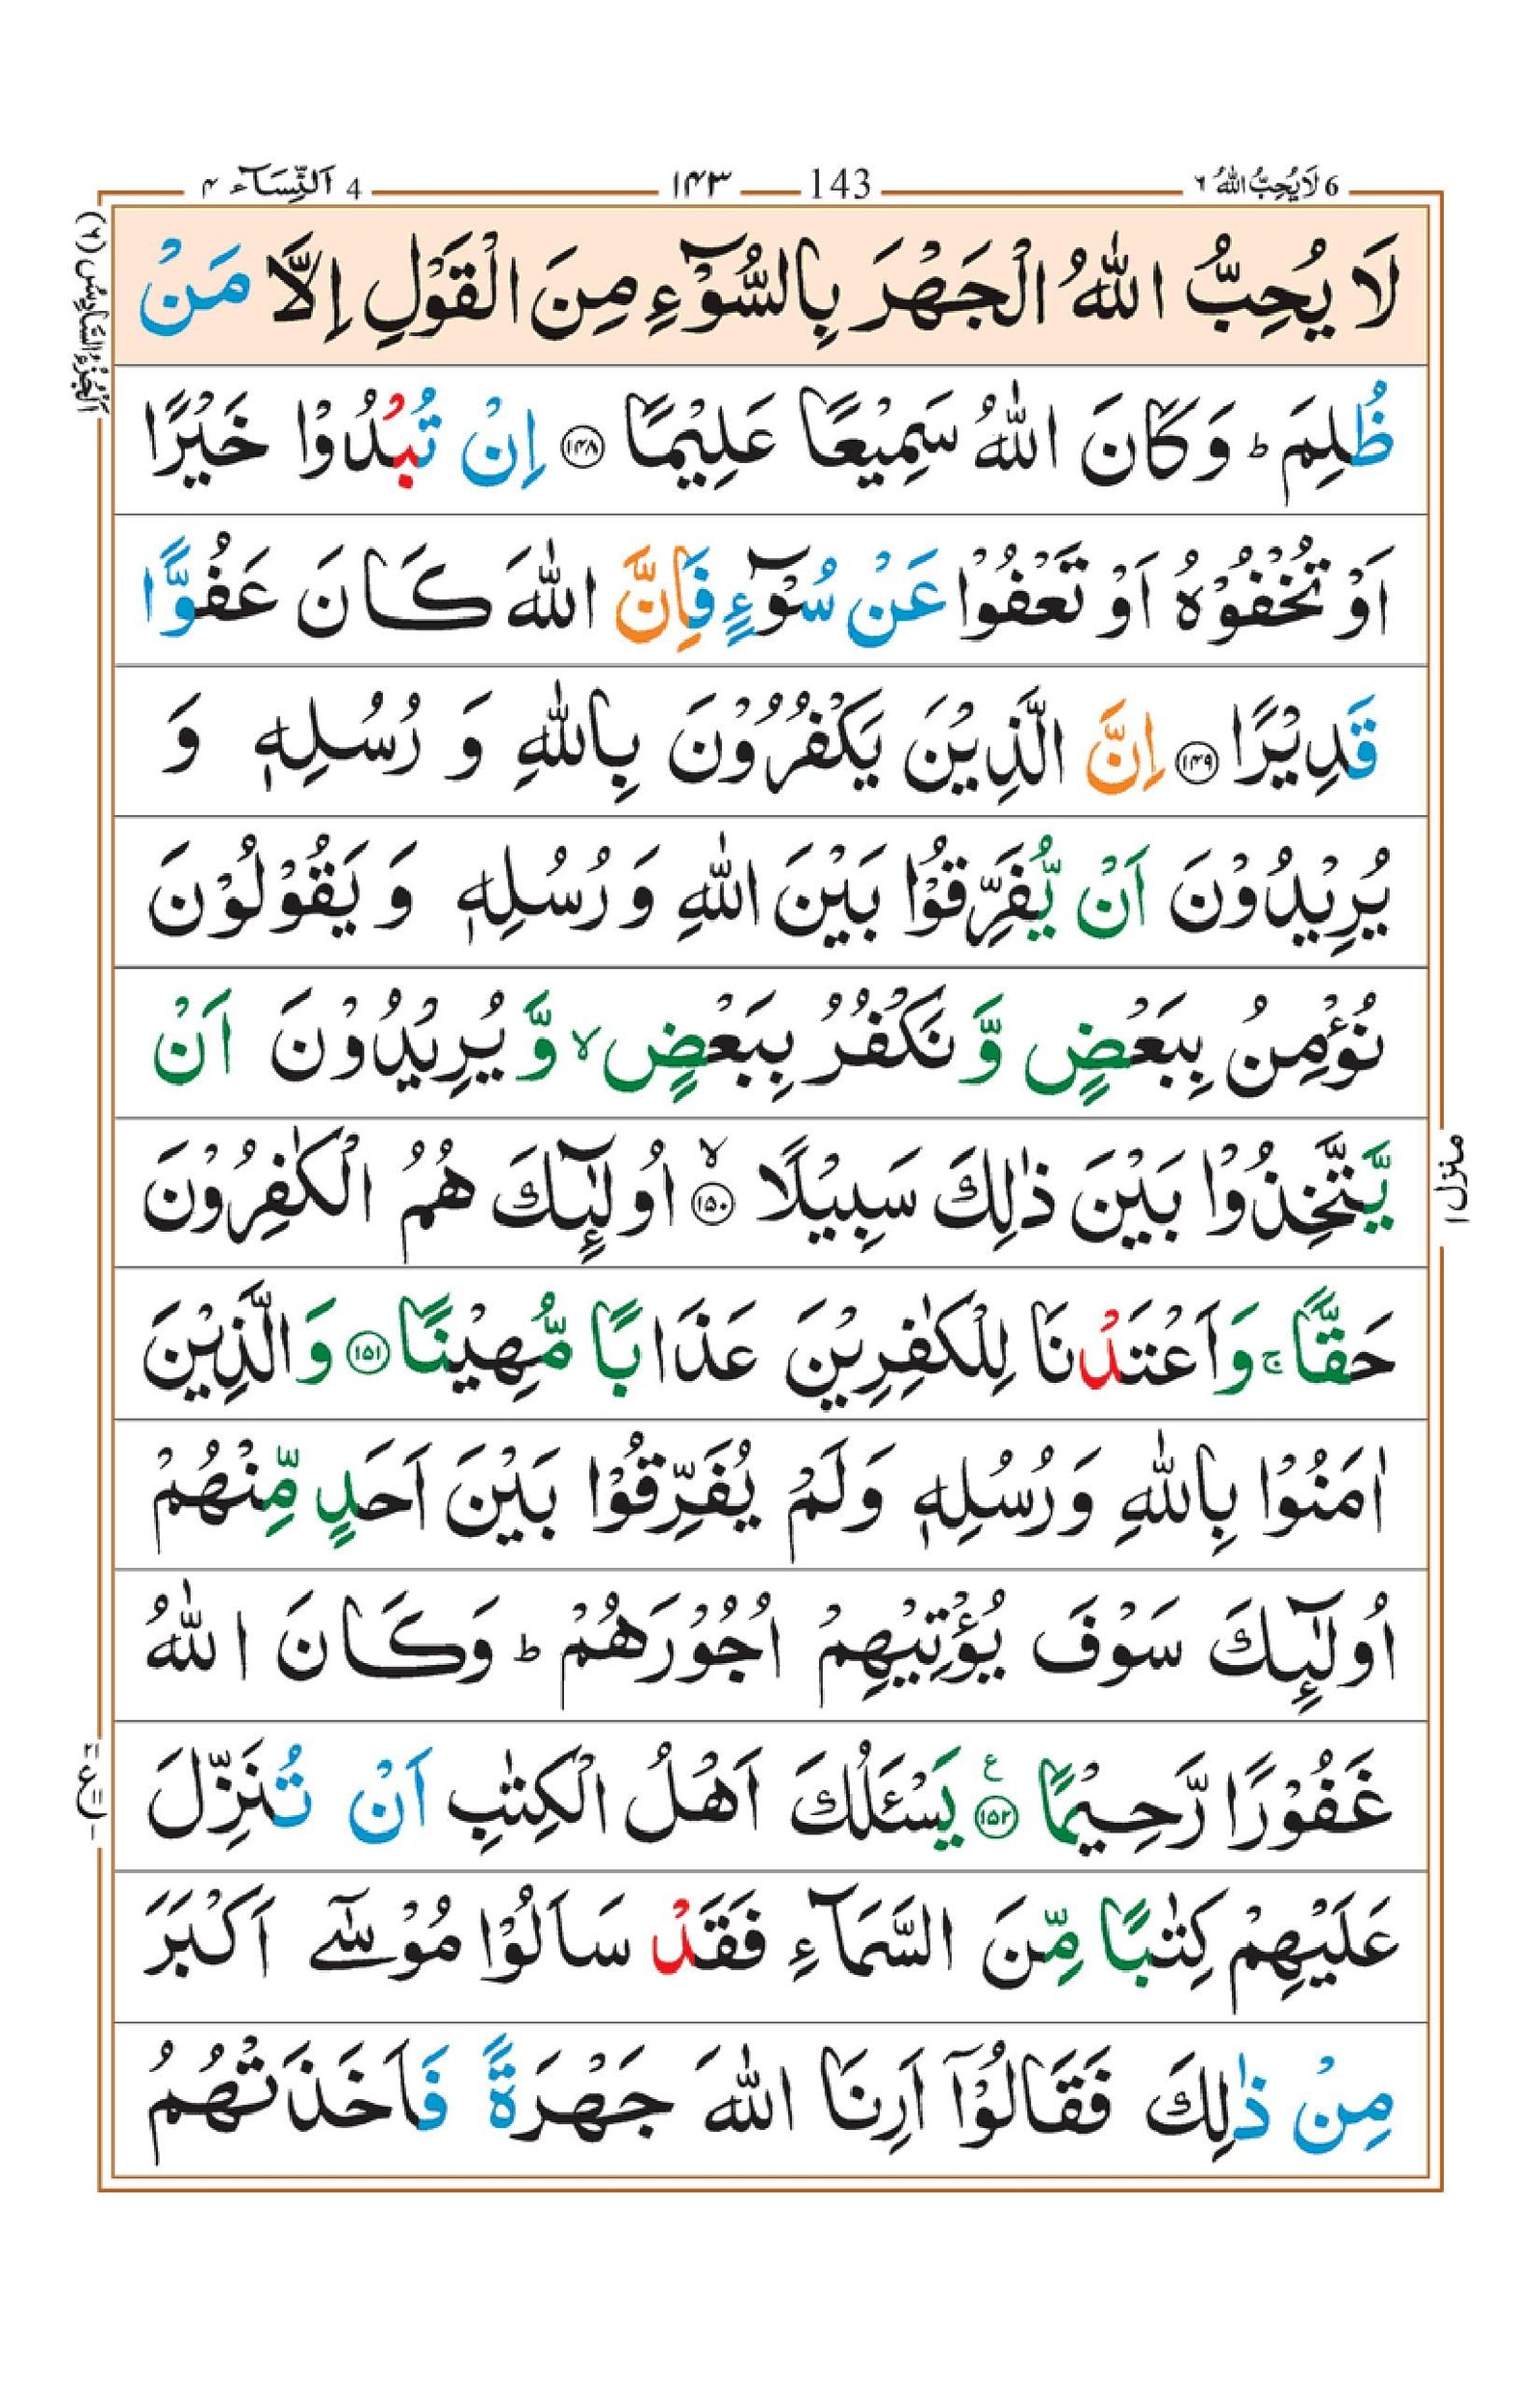 6 لَا يُحِبُّ اللّٰهُ ٦ 143 ١٤٣ 4 اَلنِّسَآء ٤
اَلْجُزْءُ السَّادِسُ (٦)
لَا يُحِبُّ اللّٰهُ الْجَهْرَ بِالسُّوْٓءِ مِنَ الْقَوْلِ اِلَّا مَنْ
ظُلِمَ ؕ وَكَانَ اللّٰهُ سَمِيْعًا عَلِيْمًا ﴿١٤٨﴾ اِنْ تُبْدُوْا خَيْرًا
اَوْ تُخْفُوْهُ اَوْ تَعْفُوْا عَنْ سُوْٓءٍ فَاِنَّ اللّٰهَ كَانَ عَفُوًّا
قَدِيْرًا ﴿١٤٩﴾ اِنَّ الَّذِيْنَ يَكْفُرُوْنَ بِاللّٰهِ وَ رُسُلِهٖ وَ
يُرِيْدُوْنَ اَنْ يُّفَرِّقُوْا بَيْنَ اللّٰهِ وَ رُسُلِهٖ وَ يَقُوْلُوْنَ
نُؤْمِنُ بِبَعْضٍ وَّ نَكْفُرُ بِبَعْضٍ ۙ وَّ يُرِيْدُوْنَ اَنْ
يَّتَّخِذُوْا بَيْنَ ذٰلِكَ سَبِيْلًا ﴿١٥٠﴾ ۙ اُولٰٓئِكَ هُمُ الْكٰفِرُوْنَ
حَقًّا ۚ وَاَعْتَدْنَا لِلْكٰفِرِيْنَ عَذَابًا مُّهِيْنًا ﴿١٥١﴾ وَالَّذِيْنَ
اٰمَنُوْا بِاللّٰهِ وَرُسُلِهٖ وَلَمْ يُفَرِّقُوْا بَيْنَ اَحَدٍ مِّنْهُمْ
اُولٰٓئِكَ سَوْفَ يُؤْتِيْهِمْ اُجُوْرَهُمْ ؕ وَكَانَ اللّٰهُ
غَفُوْرًا رَّحِيْمًا ﴿١٥٢﴾ ع يَسْـَٔلُكَ اَهْلُ الْكِتٰبِ اَنْ تُنَزِّلَ
عَلَيْهِمْ كِتٰبًا مِّنَ السَّمَآءِ فَقَدْ سَاَلُوْا مُوْسٰٓى اَكْبَرَ
مِنْ ذٰلِكَ فَقَالُوْٓا اَرِنَا اللّٰهَ جَهْرَةً فَاَخَذَتْهُمُ
منزل ١
ع